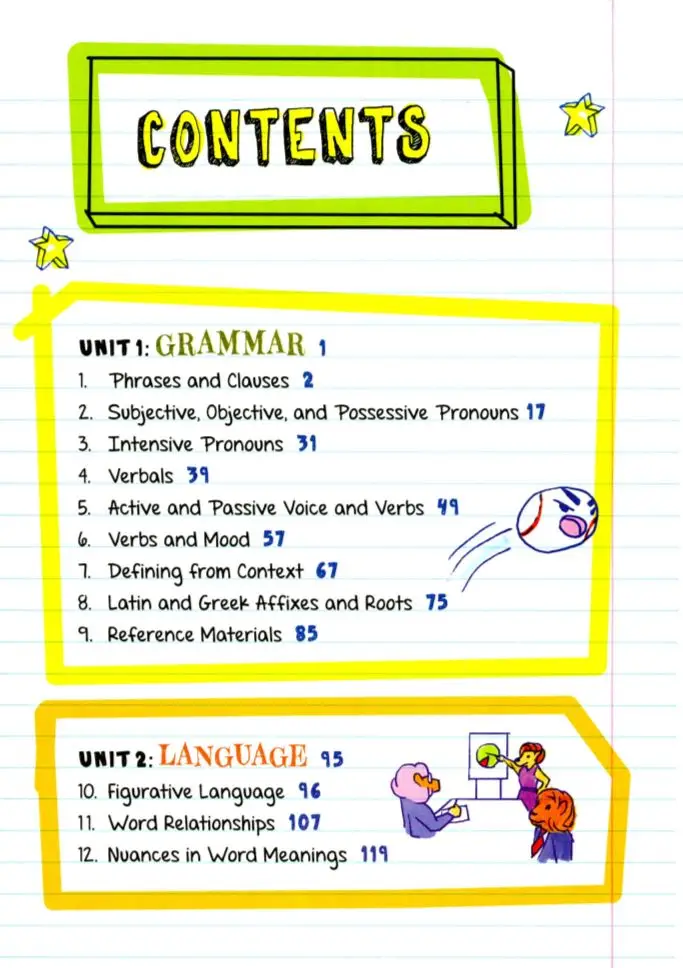 CONTENTS
UNIT 1: GRAMMAR 1
1. Phrases and Clauses 2
2. Subjective, Objective, and Possessive Pronouns 17
3. Intensive Pronouns 31
4. Verbals 39
5. Active and Passive Voice and Verbs 49
6. Verbs and Mood 57
7. Defining from Context 67
8. Latin and Greek Affixes and Roots 75
9. Reference Materials 85
UNIT 2: LANGUAGE 95
10. Figurative Language 96
11. Word Relationships 107
12. Nuances in Word Meanings 119